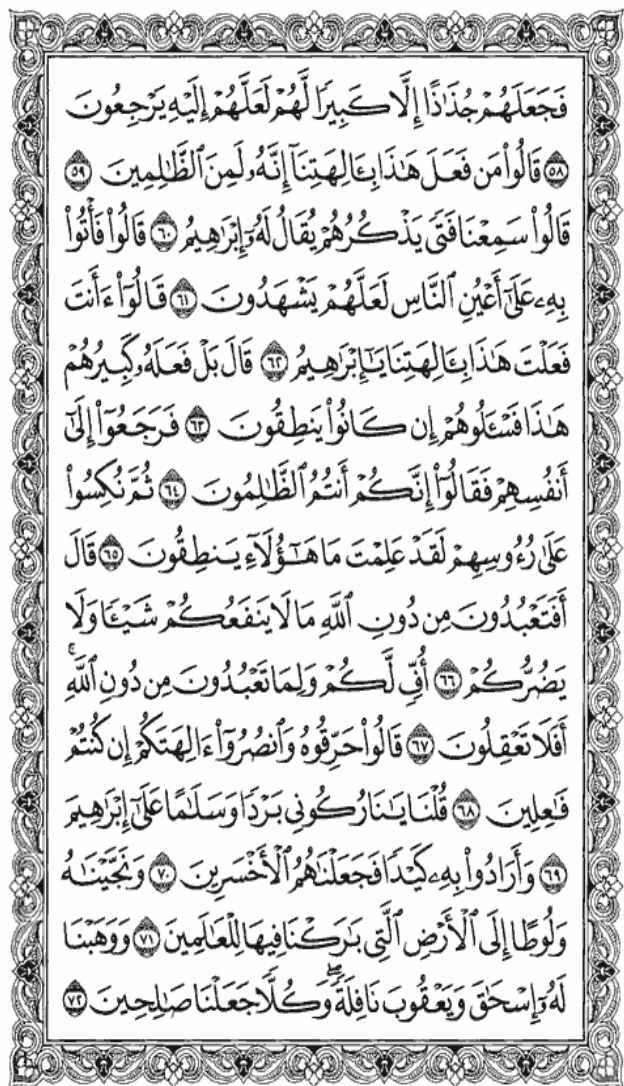 فَجَعَلَهُمْ جُذَٰذًا إِلَّا كَبِيرًا لَّهُمْ لَعَلَّهُمْ إِلَيْهِ يَرْجِعُونَ
٥٨ قَالُوا۟ مَن فَعَلَ هَٰذَا بِـَٔالِهَتِنَآ إِنَّهُۥ لَمِنَ ٱلظَّٰلِمِينَ ٥٩
قَالُوا۟ سَمِعْنَا فَتًى يَذْكُرُهُمْ يُقَالُ لَهُۥٓ إِبْرَٰهِيمُ ٦٠ قَالُوا۟ فَأْتُوا۟
بِهِۦ عَلَىٰٓ أَعْيُنِ ٱلنَّاسِ لَعَلَّهُمْ يَشْهَدُونَ ٦١ قَالُوٓا۟ ءَأَنتَ
فَعَلْتَ هَٰذَا بِـَٔالِهَتِنَا يَٰٓإِبْرَٰهِيمُ ٦٢ قَالَ بَلْ فَعَلَهُۥ كَبِيرُهُمْ
هَٰذَا فَسْـَٔلُوهُمْ إِن كَانُوا۟ يَنطِقُونَ ٦٣ فَرَجَعُوٓا۟ إِلَىٰٓ
أَنفُسِهِمْ فَقَالُوٓا۟ إِنَّكُمْ أَنتُمُ ٱلظَّٰلِمُونَ ٦٤ ثُمَّ نُكِسُوا۟
عَلَىٰ رُءُوسِهِمْ لَقَدْ عَلِمْتَ مَا هَٰٓؤُلَآءِ يَنطِقُونَ ٦٥ قَالَ
أَفَتَعْبُدُونَ مِن دُونِ ٱللَّهِ مَا لَا يَنفَعُكُمْ شَيْـًٔا وَلَا
يَضُرُّكُمْ ٦٦ أُفٍّ لَّكُمْ وَلِمَا تَعْبُدُونَ مِن دُونِ ٱللَّهِ ۚ
أَفَلَا تَعْقِلُونَ ٦٧ قَالُوا۟ حَرِّقُوهُ وَٱنصُرُوٓا۟ ءَالِهَتَكُمْ إِن كُنتُمْ
فَٰعِلِينَ ٦٨ قُلْنَا يَٰنَارُ كُونِى بَرْدًا وَسَلَٰمًا عَلَىٰٓ إِبْرَٰهِيمَ
٦٩ وَأَرَادُوا۟ بِهِۦ كَيْدًا فَجَعَلْنَٰهُمُ ٱلْأَخْسَرِينَ ٧٠ وَنَجَّيْنَٰهُ
وَلُوطًا إِلَى ٱلْأَرْضِ ٱلَّتِى بَٰرَكْنَا فِيهَا لِلْعَٰلَمِينَ ٧١ وَوَهَبْنَا
لَهُۥٓ إِسْحَٰقَ وَيَعْقُوبَ نَافِلَةً ۖ وَكُلًّا جَعَلْنَا صَٰلِحِينَ ٧٢